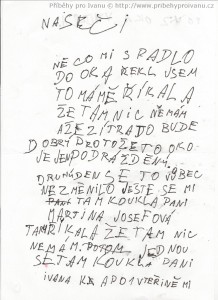 Příběhy pro Ivanu © http://www.pribehyproivanu.cz
NA SEČI
NĚCO MI SPADLO
DO OKA ŘEKL JSEM
TO MÁMĚ ŘÍKALA
ŽE TAM NIC NEMÁM
A ŽE ZÍTRA TO BUDE
DOBRÝ PROTOŽE TO OKO
JE JEN PODRÁŽDĚNÝ
DRUHÝ DEN SE TO VŮBEC
NEZMĚNILO JEŠTĚ SE MI
TAM KOUKLA PANÍ
MARTINA JOSEFOVÁ
TA ŘÍKALA ŽE TAM NIC
NEMÁM. POTOM JEDNOU
SE TAM KOUKLA PANÍ
IVANA A VĚTŘINĚ MI